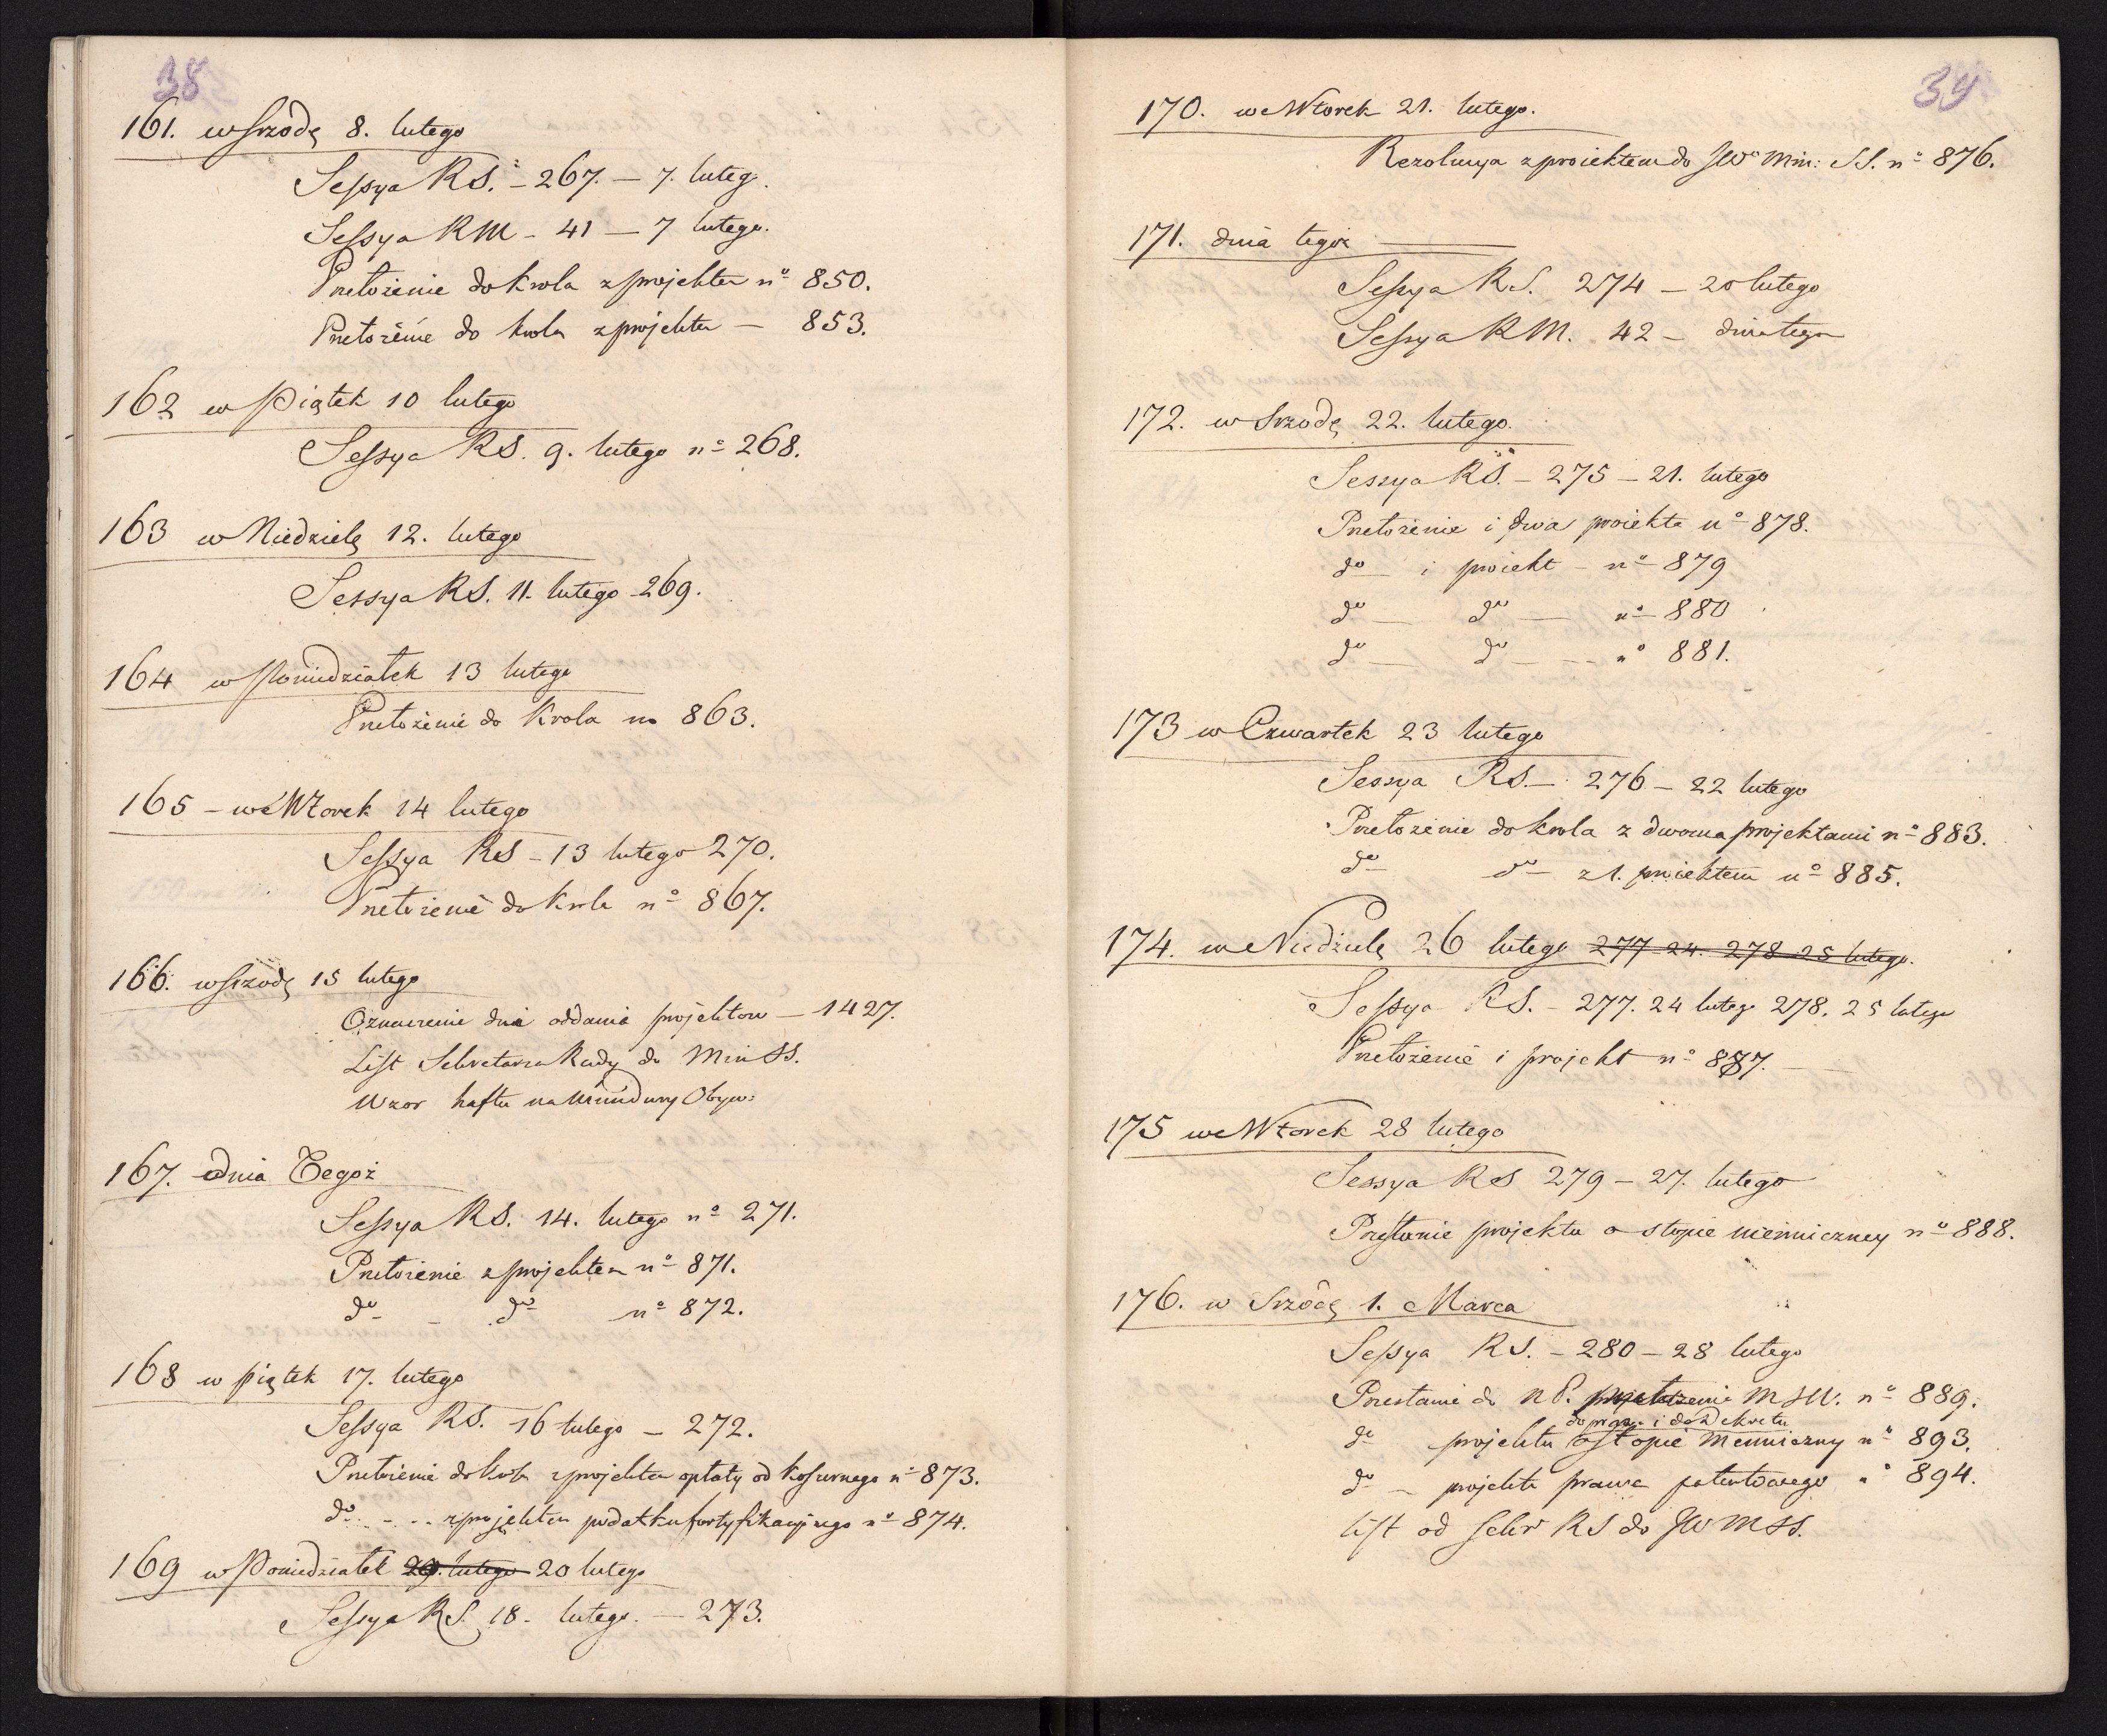 38
161. w Srzodę 8. lutego
Sessya RS. – 267. – 7. luteg.
Sessya RM – 41 – 7 lutego.
Przełożenie do Krola z projektem nº 850.
Przełożenie do krola z projektem – 853.
162 w Piątek 10 lutego
Sessya RS. 9. lutego nº 268.
163 w Niedzielę 12. lutego
Sessya RS. 11. lutego – 269.
164 w Poniedziałek 13 lutego
Przełożenie do Krola no 863.
165 – we Wtorek 14 lutego
Sessya RS – 13 lutego 270.
Przełożenie do Krola nº 867.
166. w Srzodę 15 lutego
Oznaczenie dnia oddania projektow – 1427.
List Sekretarza Rady do Min SS.
Wzor haftu na Mundury Obyw:
167. dnia Tegoż
Sessya RS. 14. lutego nº 271.
Przełożenie z projektem nº 871.
dº – dº nº 872.
168 w piątek 17. lutego
Sessya RS. 16 lutego – 272.
Przełożenie do Krola z projektem opłaty od koszernego nº 873.
dº – – z projektem podatku fortyfikacyjnego nº 874.
169 w Poniedziałek 20 lutego
Sessya RS. 18 – lutego. – 273.
39
170. we Wtorek 21. lutego.
Rezolucya z proiektem do JWº Min: SS. nº 876.
171. dnia tegoż
Sessya RS. 274 – 20 lutego
Sessya RM. 42 – dnia tego
172. w Srzodę 22. lutego.
Sessya RS. – 275 – 21. lutego
Przełożenie i dwa proiekta nº 878.
dº – i proiekt – nº 879
dº – dº – nº 880
dº – dº – – nº 881.
173 w Czwartek 23 lutego
Sessya RS. – 276 – 22 lutego
Przełożenie do krola z dwoma projektami nº 883.
dº – dº – z 1. proiektem nº 885.
174. w Niedzielę 26 lutego 277–24. 278–25 lutego.
Sessya RS. – 277. 24 luteg 278. 25 lutego
Przełożenie i projekt nº 887.
175 we Wtorek 28 lutego
Sessya RS 279 – 27. lutego
Przesłanie projektu o stopie menniczney nº 888.
176. w Srzodę 1. Marca
Sessya RS. – 280 – 28 lutego
Przesłanie do NP. MSW. nº 889.
do praw i do Dekretu
dº projektu o stopie Menniczny nº 893.
dº – projektu prawa patentowego nº 894.
list od Sekr RS do JW MSS.